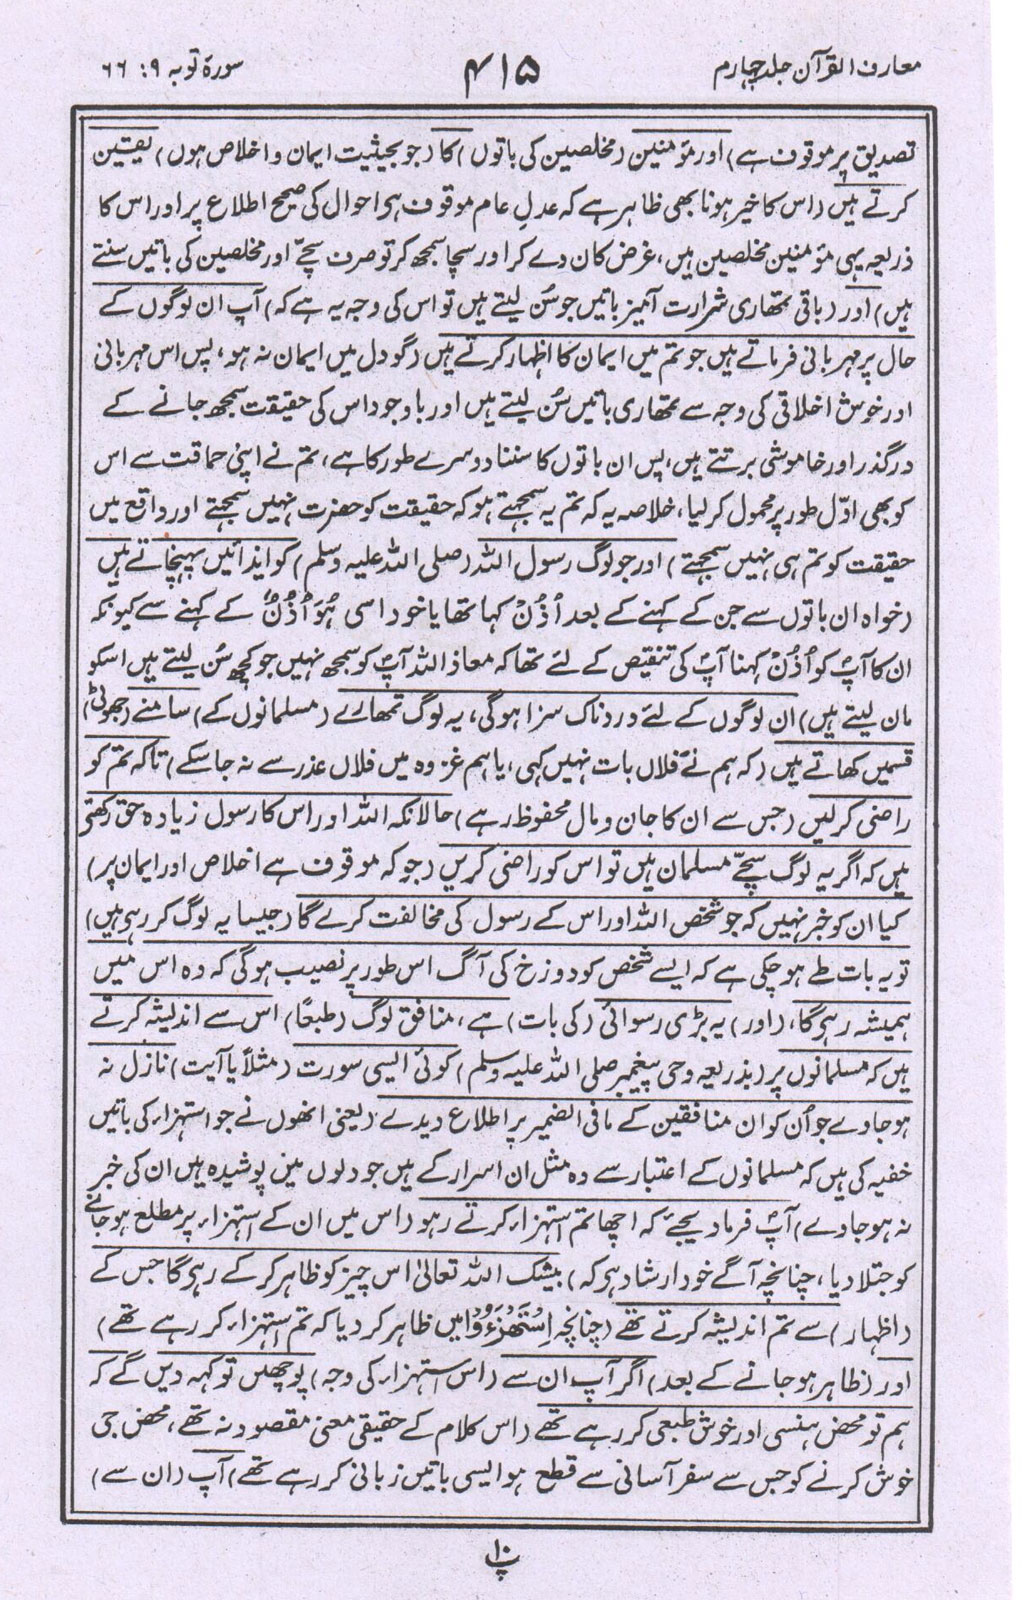 معارف القرآن جلد چہارم
۴۱۵
سورۂ توبہ ۹: ۶۶
تصدیق پر موقوف ہے) اور مؤمنین (مخلصین کی باتوں) کا (جو بحیثیت ایمان و اخلاص ہوں) یقین
کرتے ہیں (اس کا خیر ہونا بھی ظاہر ہے کہ عدلِ عام موقوف ہی احوال کی صحیح اطلاع پر اور اس کا
ذریعہ یہی مؤمنین مخلصین ہیں، غرض کان دے کر اور سچا سمجھ کر تو صرف سچّے اور مخلصین کی باتیں سنتے
ہیں) اور (باقی تمھاری شرارت آمیز باتیں جو سُن لیتے ہیں تو اس کی وجہ یہ ہے کہ) آپ ان لوگوں کے
حال پر مہربانی فرماتے ہیں جو تم میں ایمان کا اظہار کرتے ہیں (گو دل میں ایمان نہ ہو، پس اس مہربانی
اور خوش اخلاقی کی وجہ سے تمھاری باتیں سُن لیتے ہیں اور باوجود اس کی حقیقت سمجھ جانے کے
درگذر اور خاموشی برتتے ہیں، پس ان باتوں کا سننا دوسرے طور کا ہے، تم نے اپنی حماقت سے اس
کو بھی اوّل طور پر محمول کرلیا، خلاصہ یہ کہ تم یہ سمجھتے ہو کہ حقیقت کو حضرت نہیں سمجھتے اور واقع میں
حقیقت کو تم ہی نہیں سمجھتے) اور جو لوگ رسول اللہ (صلی اللہ علیہ وسلم) کو ایذائیں پہنچاتے ہیں
(خواہ ان باتوں سے جن کے کہنے کے بعد اُذُنٌ کہا تھا یا خود اسی ھُوَ اُذُنٌ کے کہنے سے کیونکہ
ان کا آپؐ کو اُذُنٌ کہنا آپؐ کی تنقیص کے لئے تھا کہ معاذ اللہ آپؐ کو سمجھ نہیں جو کچھ سُن لیتے ہیں اسکو
مان لیتے ہیں) ان لوگوں کے لئے دردناک سزا ہوگی، یہ لوگ تمھارے (مسلمانوں کے) سامنے (جھوٹی)
قسمیں کھاتے ہیں (کہ ہم نے فلاں بات نہیں کہی، یا ہم غزوہ میں فلاں عذر سے نہ جاسکے) تاکہ تم کو
راضی کرلیں (جس سے ان کا جان و مال محفوظ رہے) حالانکہ اللہ اور اس کا رسول زیادہ حق رکھتی
ہیں کہ اگر یہ لوگ سچّے مسلمان ہیں تو اس کو راضی کریں (جو کہ موقوف ہے اخلاص اور ایمان پر)
کیا ان کو خبر نہیں کہ جو شخص اللہ اور اس کے رسول کی مخالفت کرے گا (جیسا یہ لوگ کر رہی ہیں)
تو یہ بات طے ہو چکی ہے کہ ایسے شخص کو دوزخ کی آگ اس طور پر نصیب ہوگی کہ وہ اس میں
ہمیشہ رہی گا، (اور) یہ بڑی رسوائی (کی بات) ہے، منافق لوگ (طبعاً) اس سے اندیشہ کرتے
ہیں کہ مسلمانوں پر (بذریعہ وحی پیغمبر صلی اللہ علیہ وسلم) کوئی ایسی سورت (مثلاً یا آیت) نازل نہ
ہوجاوے جو اُن کو ان منافقین کے مافی الضمیر پر اطلاع دیدے (یعنی انھوں نے جو استہزاء کی باتیں
خفیہ کی ہیں کہ مسلمانوں کے اعتبار سے وہ مثل ان اسرار کے ہیں جو دلوں میں پوشیدہ ہیں ان کی خبر
نہ ہوجاوے) آپؐ فرما دیجئے کہ اچھا تم استہزاء کرتے رہو (اس میں ان کے استہزاء پر مطلع ہوجانے
کو جتلا دیا، چنانچہ آگے خود ارشاد ہی کہ) بیشک اللہ تعالیٰ اس چیز کو ظاہر کر کے رہی گا جس کے
(اظہار) سے تم اندیشہ کرتے تھے (چنانچہ اِسْتَھْزِءُوْا میں ظاہر کردیا کہ تم استہزاء کر رہے تھے)
اور (ظاہر ہوجانے کے بعد) اگر آپ ان سے (اس استہزاء کی وجہ) پوچھیں تو کہہ دیں گے کہ
ہم تو محض ہنسی اور خوش طبعی کر رہے تھے (اس کلام کے حقیقی معنی مقصود نہ تھے، محض جی
خوش کرنے کو جس سے سفر آسانی سے قطع ہو ایسی باتیں زبانی کر رہے تھے) آپ (ان سے)
پ۱۰